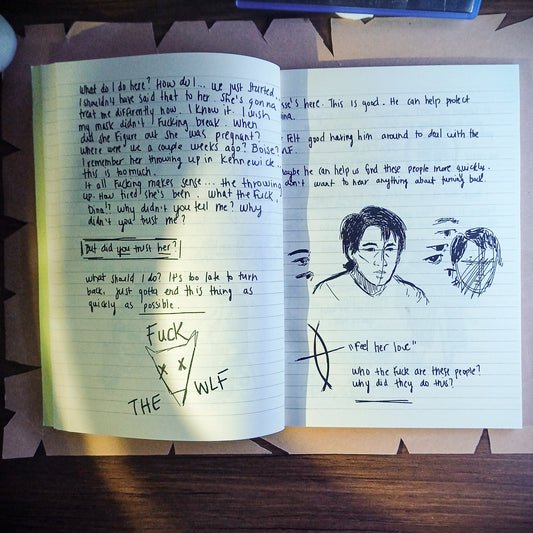 What do I do here? How do I... we just started.
I shouldn't have said that to her. She's gonna
treat me differently now. I know it. I wish
my mask didn't fucking break. When
did she figure out she was pregnant?
where were we a couple weeks ago? Boise?
I remember her throwing up in Kennewick.
this is too much.
It all fucking makes sense... the throwing
up. How tired she's been. what the fuck,
Dina!? why didn't you tell me? why
didn't you trust me?
But did you trust her?
what should I do? It's too late to turn
back. Just gotta end this thing as
quickly as possible.
Fuck
THE WLF
sse's here. This is good. He can help protect
ina.
Felt good having him around to deal with the
WLF.
Maybe he can help us find these people more quickly.
don't want to hear anything about turning back.
"Feel her love"
who the fuck are these people?
why did they do this?